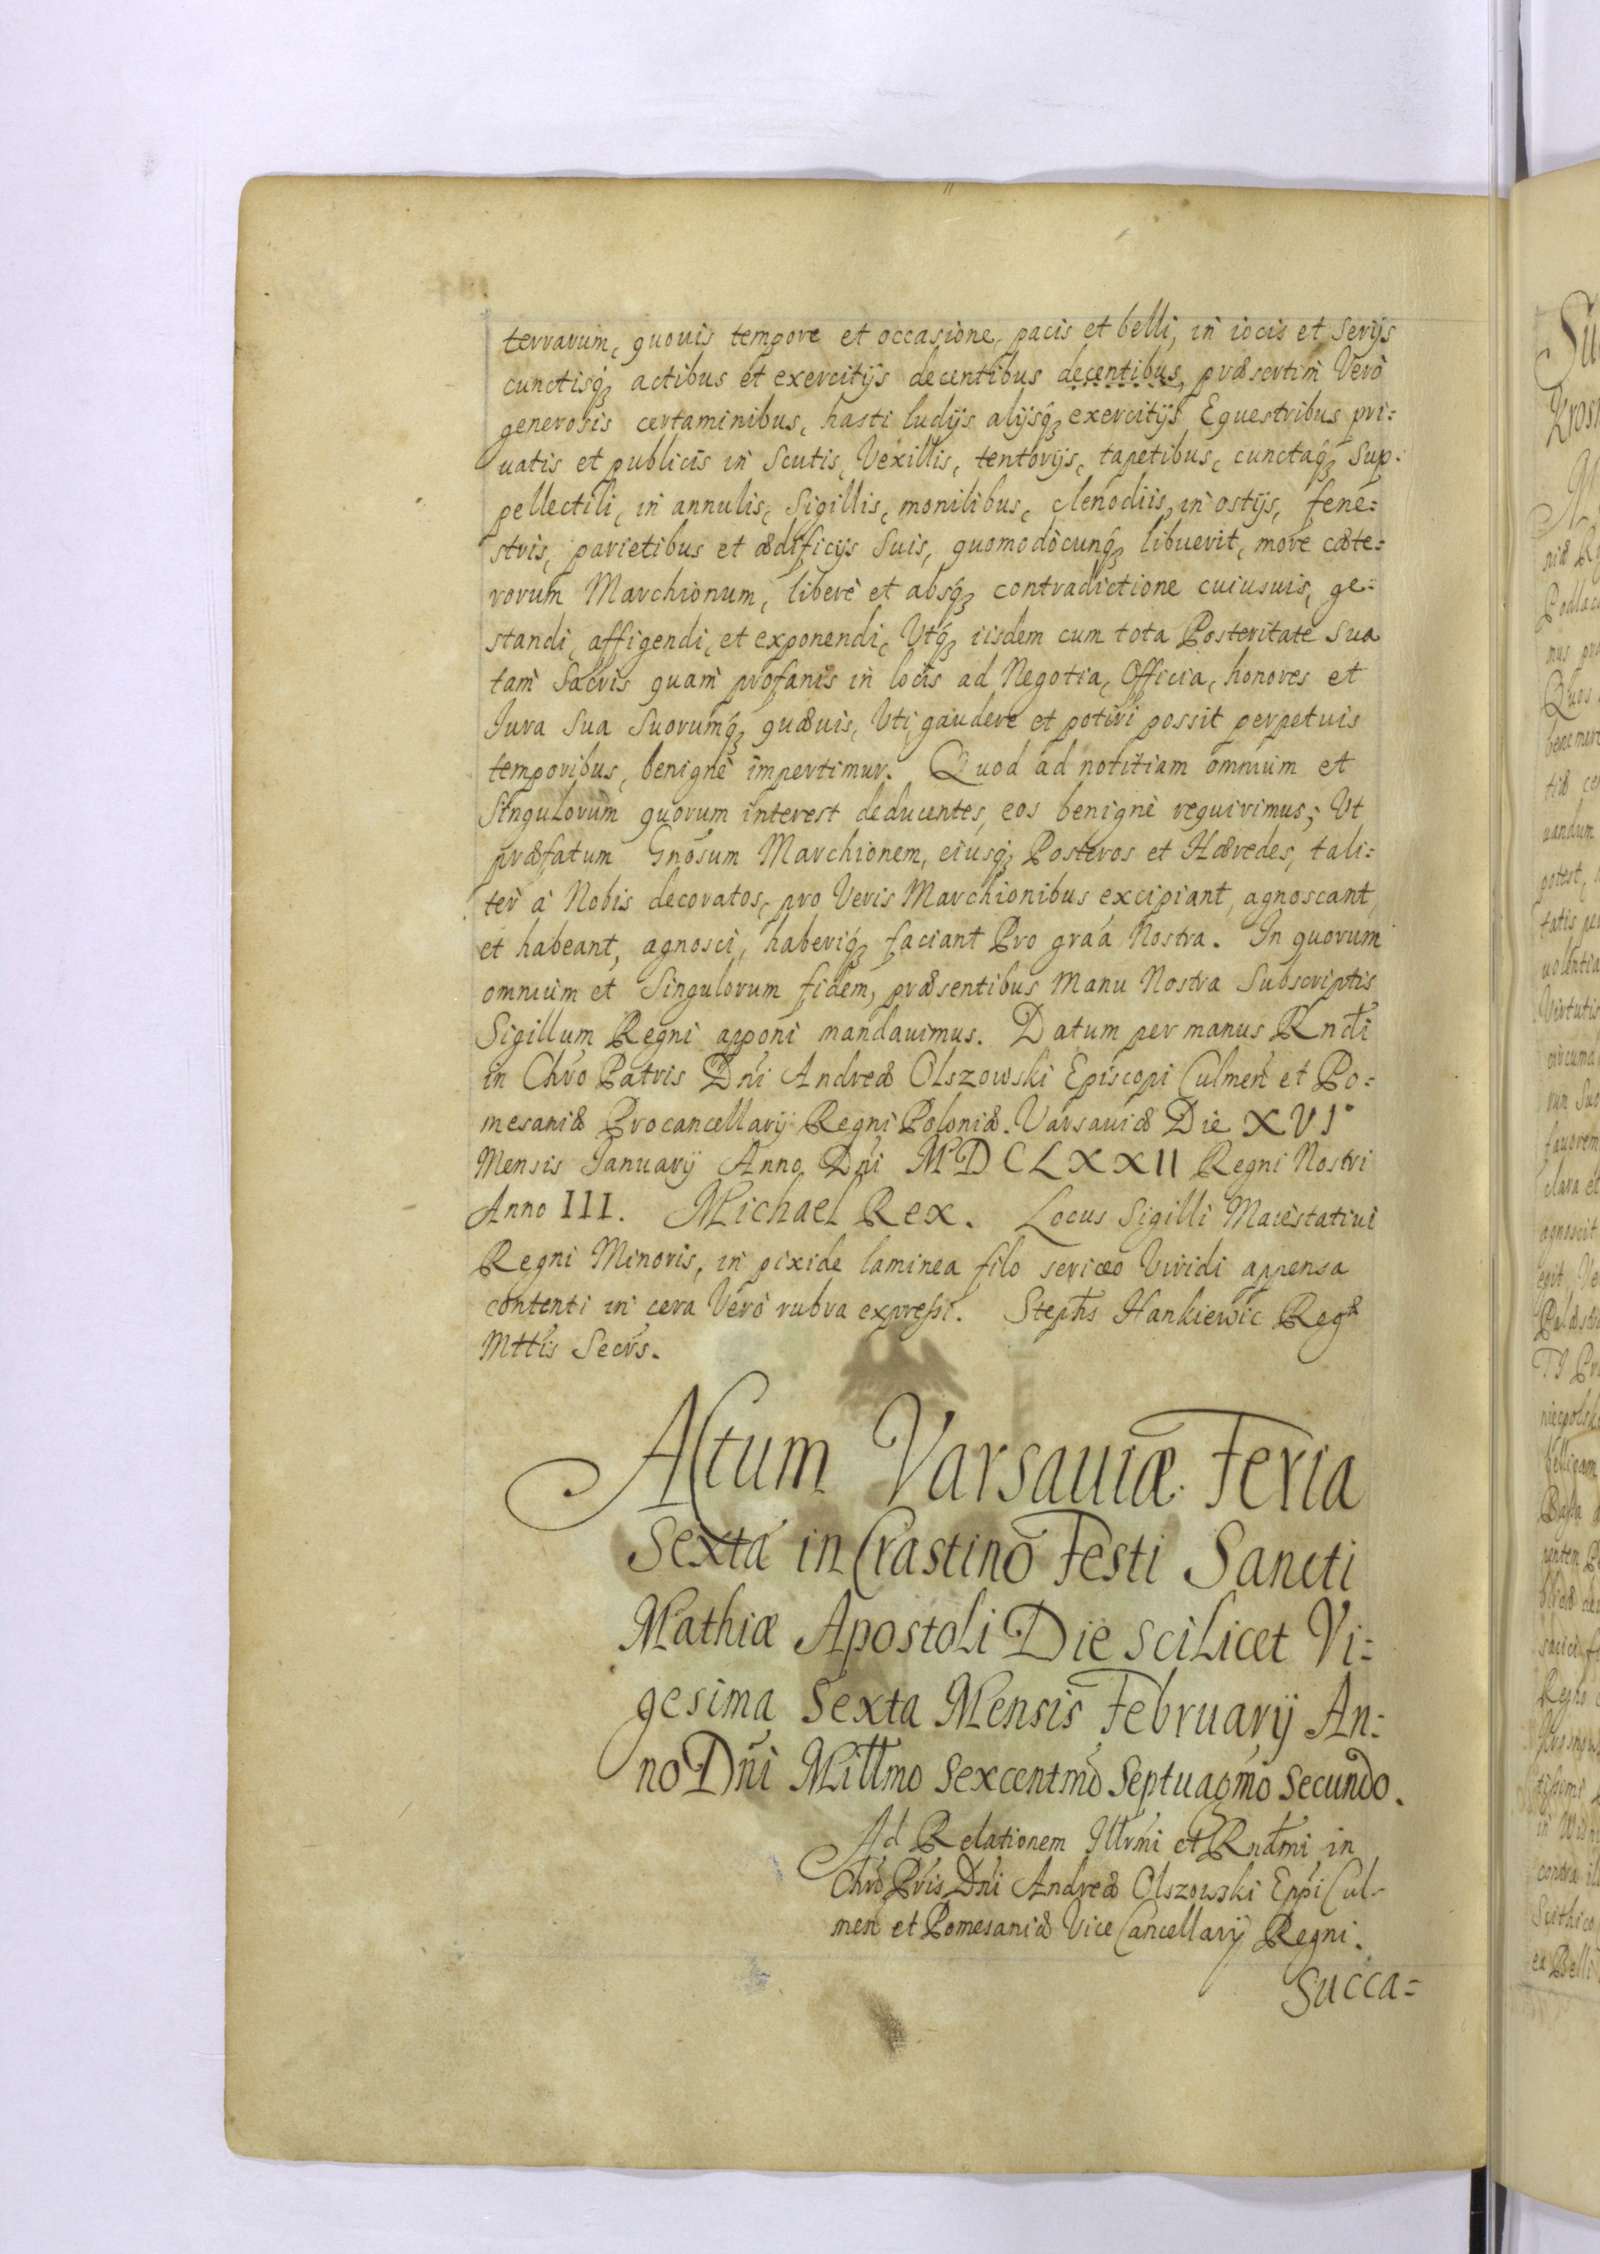 terrarum, quouis tempore et occasione, pacis et belli, in iocis et Serijs
cunctisq3 actibus et exercitijs decentibus decentibus, præsertim Verò
generosis certaminibus, hasti ludijs alijsq3 exercitijs Equestribus pri=
uatis et publicis in Scutis, Vexillis, tentorijs, tapetibus, cunctaq3 Sup=
pellectili, in annulis, Sigillis, monilibus, clenodiis, in ostijs, fene=
stris, parietibus et ædificijs Suis, quomodocunq3 libuerit, more cæte=
rorum Marchionum, liberè et absq3 contradictione cuiusuis, ge=
standi, affigendi, et exponendi, Utq3 iisdem cum tota Posteritate Sua
tam Sacris quam profanis in locis ad Negotia, Officia, honores et
Iura Sua Suorumq3 quæuis, Uti, gaudere et potiri possit perpetuis
temporibus, benignè impertimur. Quod ad notitiam omnium et
Singulorum quorum interest deducentes, eos benignè requirimus; Ut
præfatum Gnosum Marchionem, eiusq3 Posteros et Hæredes, tali=
ter à Nobis decoratos, pro Veris Marchionibus excipiant, agnoscant,
et habeant, agnosci, haberiq3 faciant Pro graa Nostra. In quorum
omnium et Singulorum fidem, præsentibus Manu Nostra Subscriptis
Sigillum Regni apponi mandauimus. Datum per manus Rndi
in Chro Patris Dni Andreæ Olszowski Episcopi Culmen et Po=
mesaniæ Procancellarij Regni Poloniæ. Varsauiæ Die XVI
Mensis Ianuarij Anno Dni MDCLXXII Regni Nostri
Anno III. Michael Rex. Locus Sigilli Maiestatiui
Regni Minoris, in pixide laminea filo sericeo Viridi appensa
contenti in cera Verò rubra expressi. Stephs Hankiewic Reg
Mttis Secrs.
Actum Varsauiæ Feria
Sexta in Crastino Festi Sancti
Mathiæ Apostoli Die scilicet Vi=
gesima Sexta Mensis Februarij An=
no Dni Millmo Sexcentmo Septuagmo Secundo.
Ad Relationem Illrmi et Rndmi in
Chro Pris Dni Andreæ Olszowski Eppi Cul=
men et Pomesaniæ Vice Cancellarij Regni.
Succa=